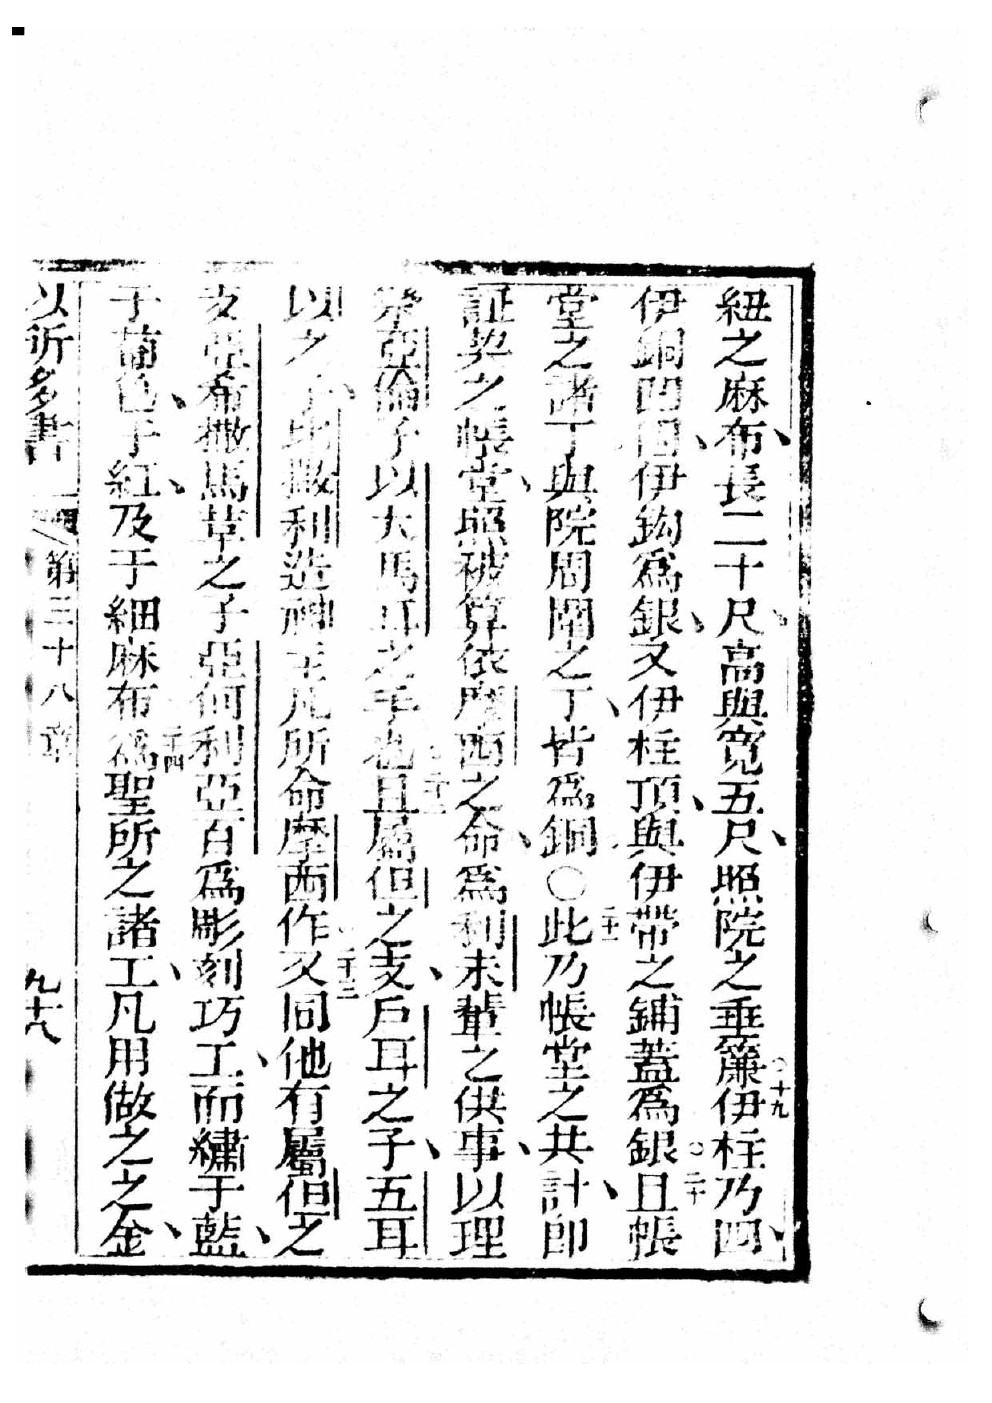 紐之麻布長二十尺高與寬五尺照院之垂簾○十九伊柱乃四
伊銅凹四伊鈎為銀又伊柱頂與伊帶之鋪蓋為銀○二十且帳
堂之諸丁與院周圍之丁皆為銅○二十一此乃帳堂之共計即
証契之帳堂照被算依摩西之命為利未輩之供事以理
亞倫子以大馬耳之手也二十二且屬但之支戶耳之子五耳
以之子比撒利造神主凡所命摩西作二十三又同他有屬但之
支亞希撒馬草之子亞何利亞百為彫刻巧工而繡于藍
于葡色于紅及于細麻布二十四為聖所之諸工凡用做之之金
以所多書 第三十八章 九十八